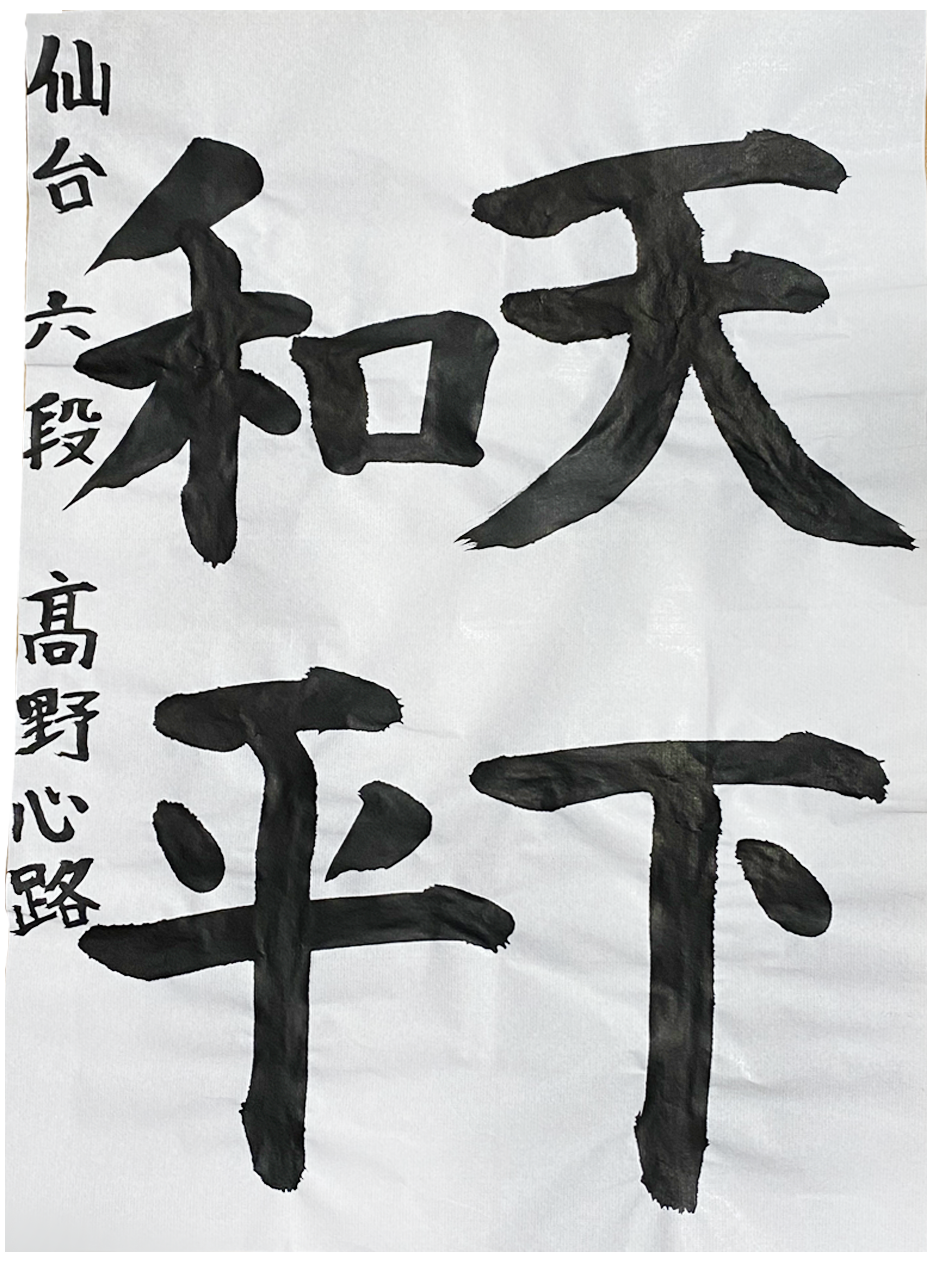 天下
和平
仙台 六段 髙野心路